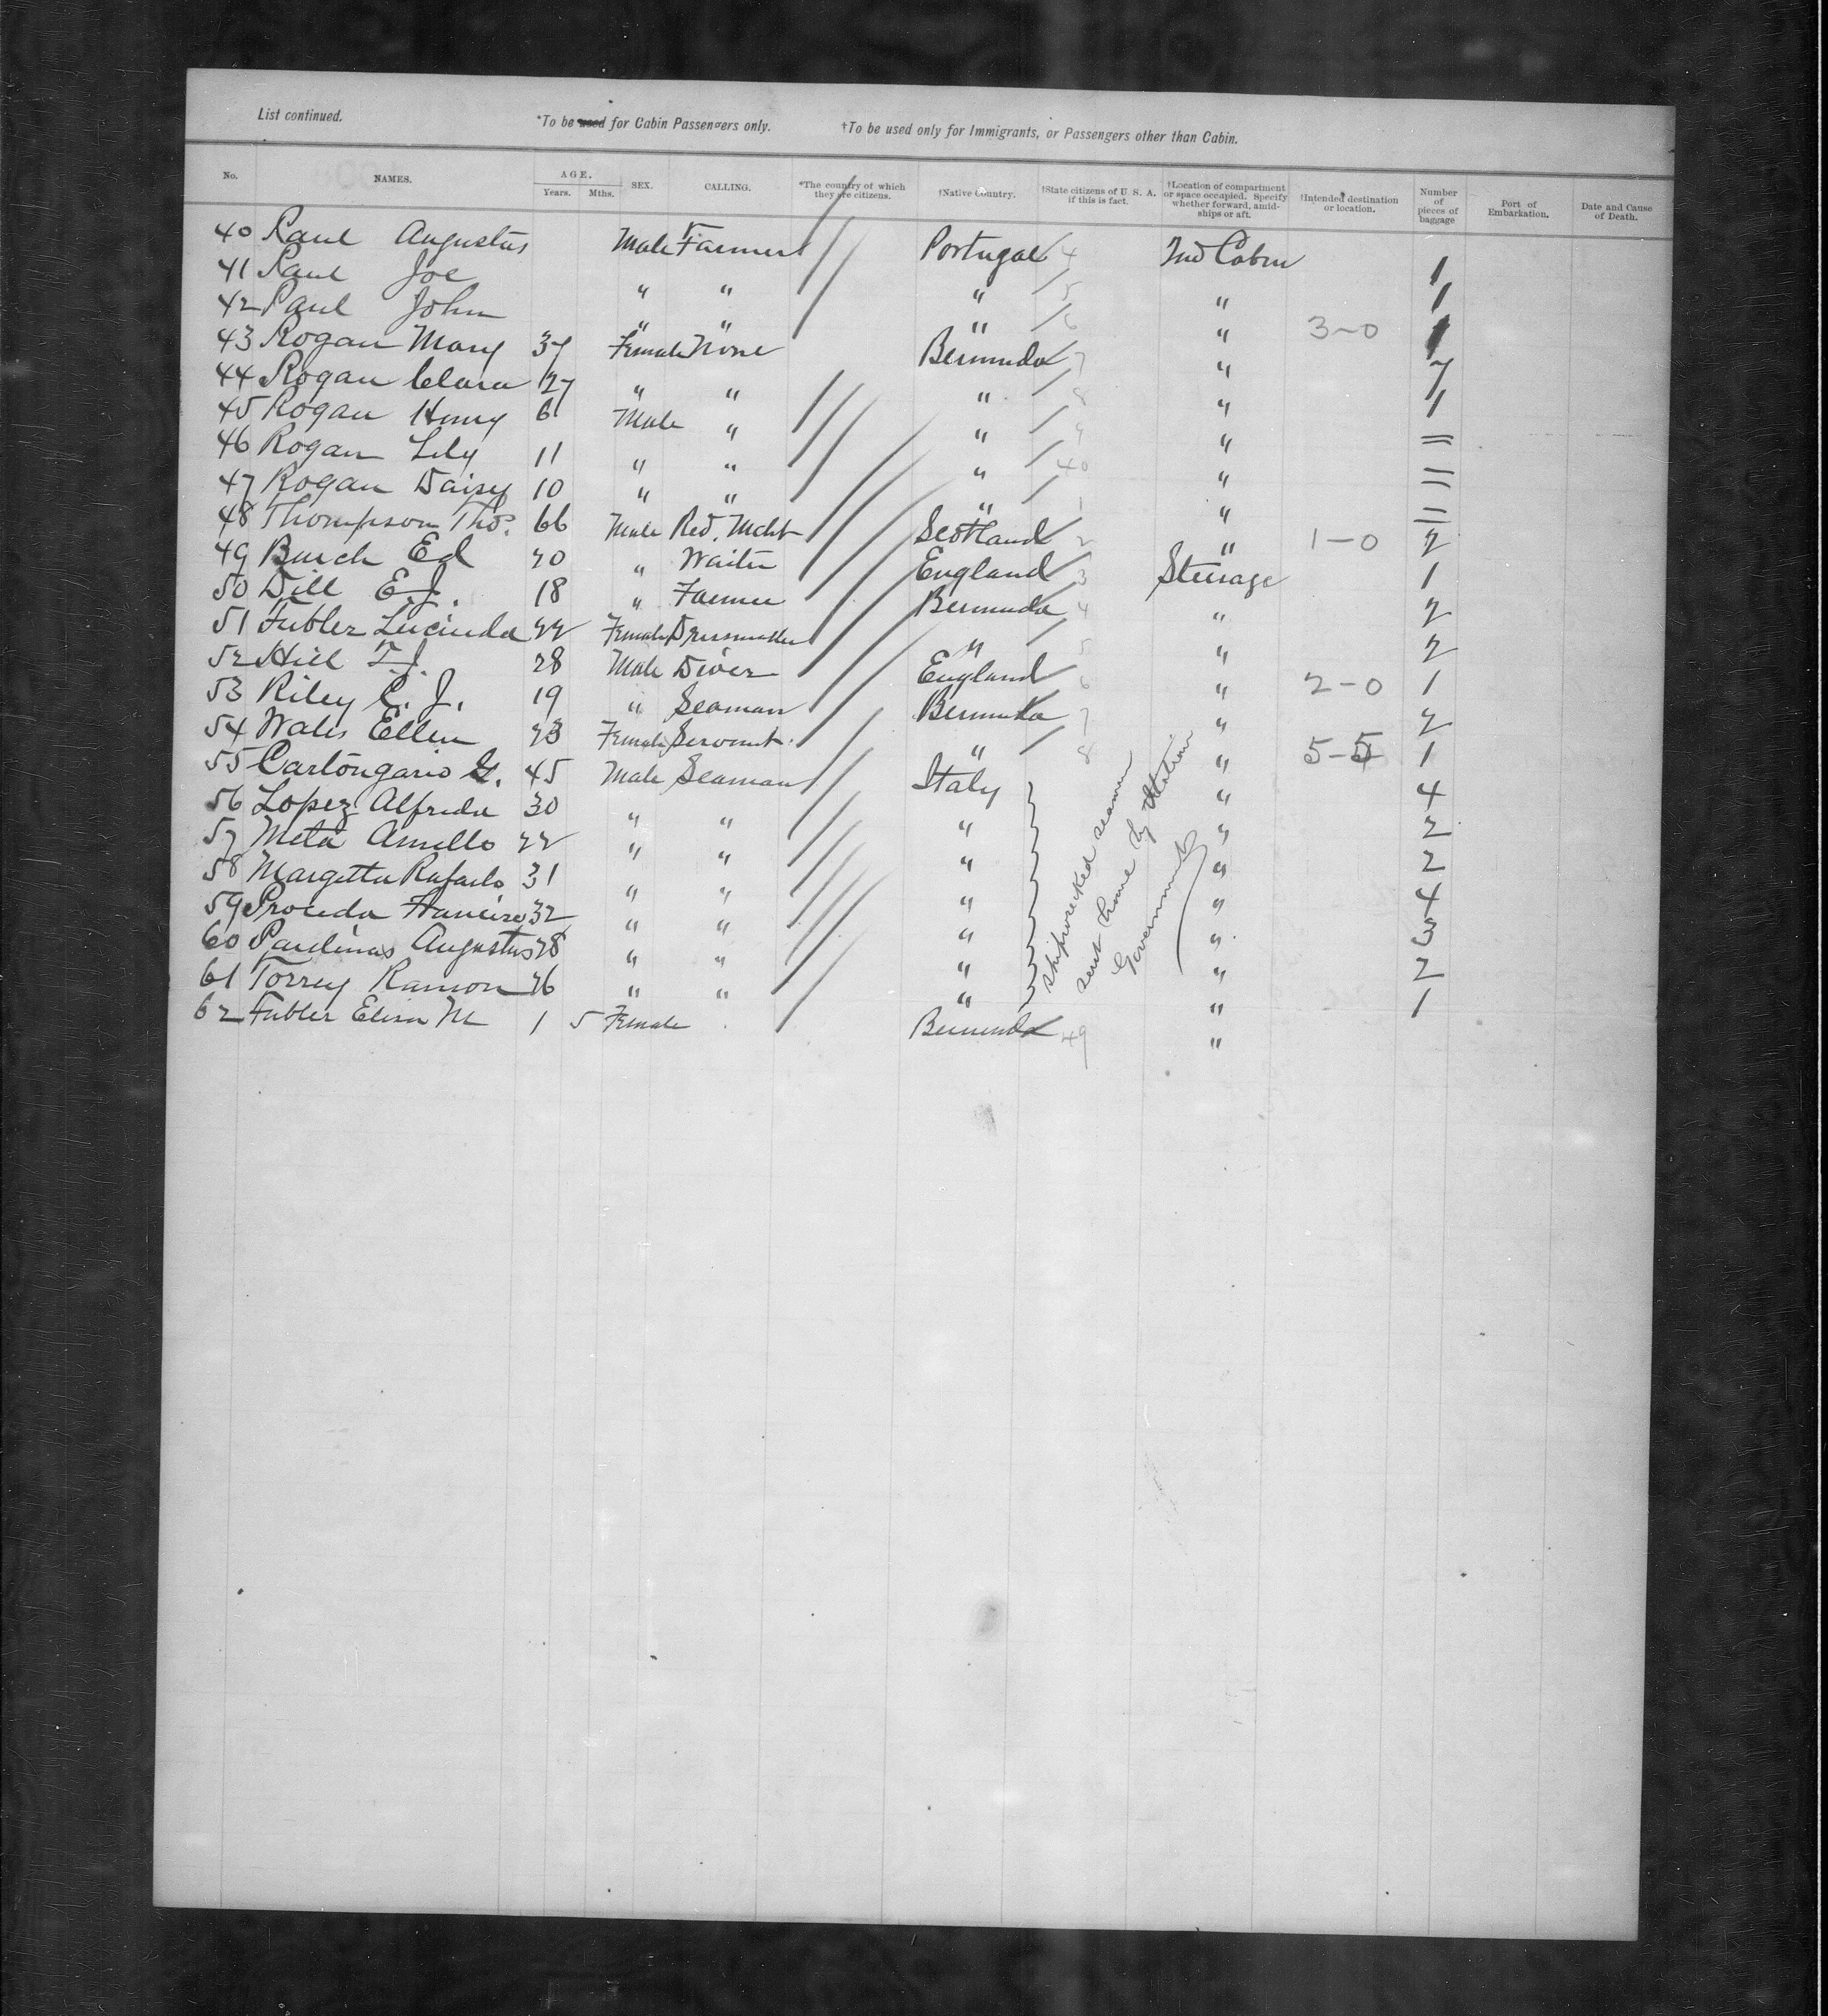 List continued. *To be used for Cabin Passengers only. †To be used only for Immigrants, or Passengers other than Cabin.
No. NAMES. AGE. Years. Mths. SEX. CALLING. *The country of which they are citizens. †Native Country. †State citizens of U. S. A. if this is fact. †Location of compartment or space occupied. Specify whether forward, amidships or aft. †Intended destination or location. Number of pieces of baggage Port of Embarkation. Date and Cause of Death.
40 Paul Augustus Male Farmer Portugal 4 2nd Cabin 1
41 Paul Joe " " " 5 " 1
42 Paul John " " " 6 " 3-0 1
43 Rogan Mary 37 Female None Bermuda 7 " 7
44 Rogan Clara 27 " " " 8 " 1
45 Rogan Henry 6 Male " " 9 " =
46 Rogan Lily 11 " " " 40 " =
47 Rogan Daisy 10 " " " 1 " =
48 Thompson Thos. 66 Male Red. Mcht Scotland 2 " 1-0 2
49 Burch Ed 20 " Waiter England 3 Steerage 1
50 Dill E.J. 18 " Farmer Bermuda 4 " 2
51 Fubler Lucinda 22 Female Dressmaker " 5 " 2
52 Hill T.J. 28 Male Diver England 6 " 2-0 1
53 Riley C. J. 19 " Seaman Bermuda 7 " 2
54 Wales Ellen 23 Female Servant " 8 " 5-5 1
55 Carlongario G. 45 Male Seaman Italy " 4
56 Lopez Alfreda 30 " " " " 2
57 Meta Amello 22 " " " " 2
58 Margetta Rafaelo 31 " " " " 4
59 Proceda Francisco 32 " " " " 3
60 Paulinas Augustus 28 " " " " 2
61 Torrey Ramon 26 " " " " 1
62 Fubler Eliza M 1 5 Female Bermuda 49 "
shipwrecked seamen
sent home by Italian
Government